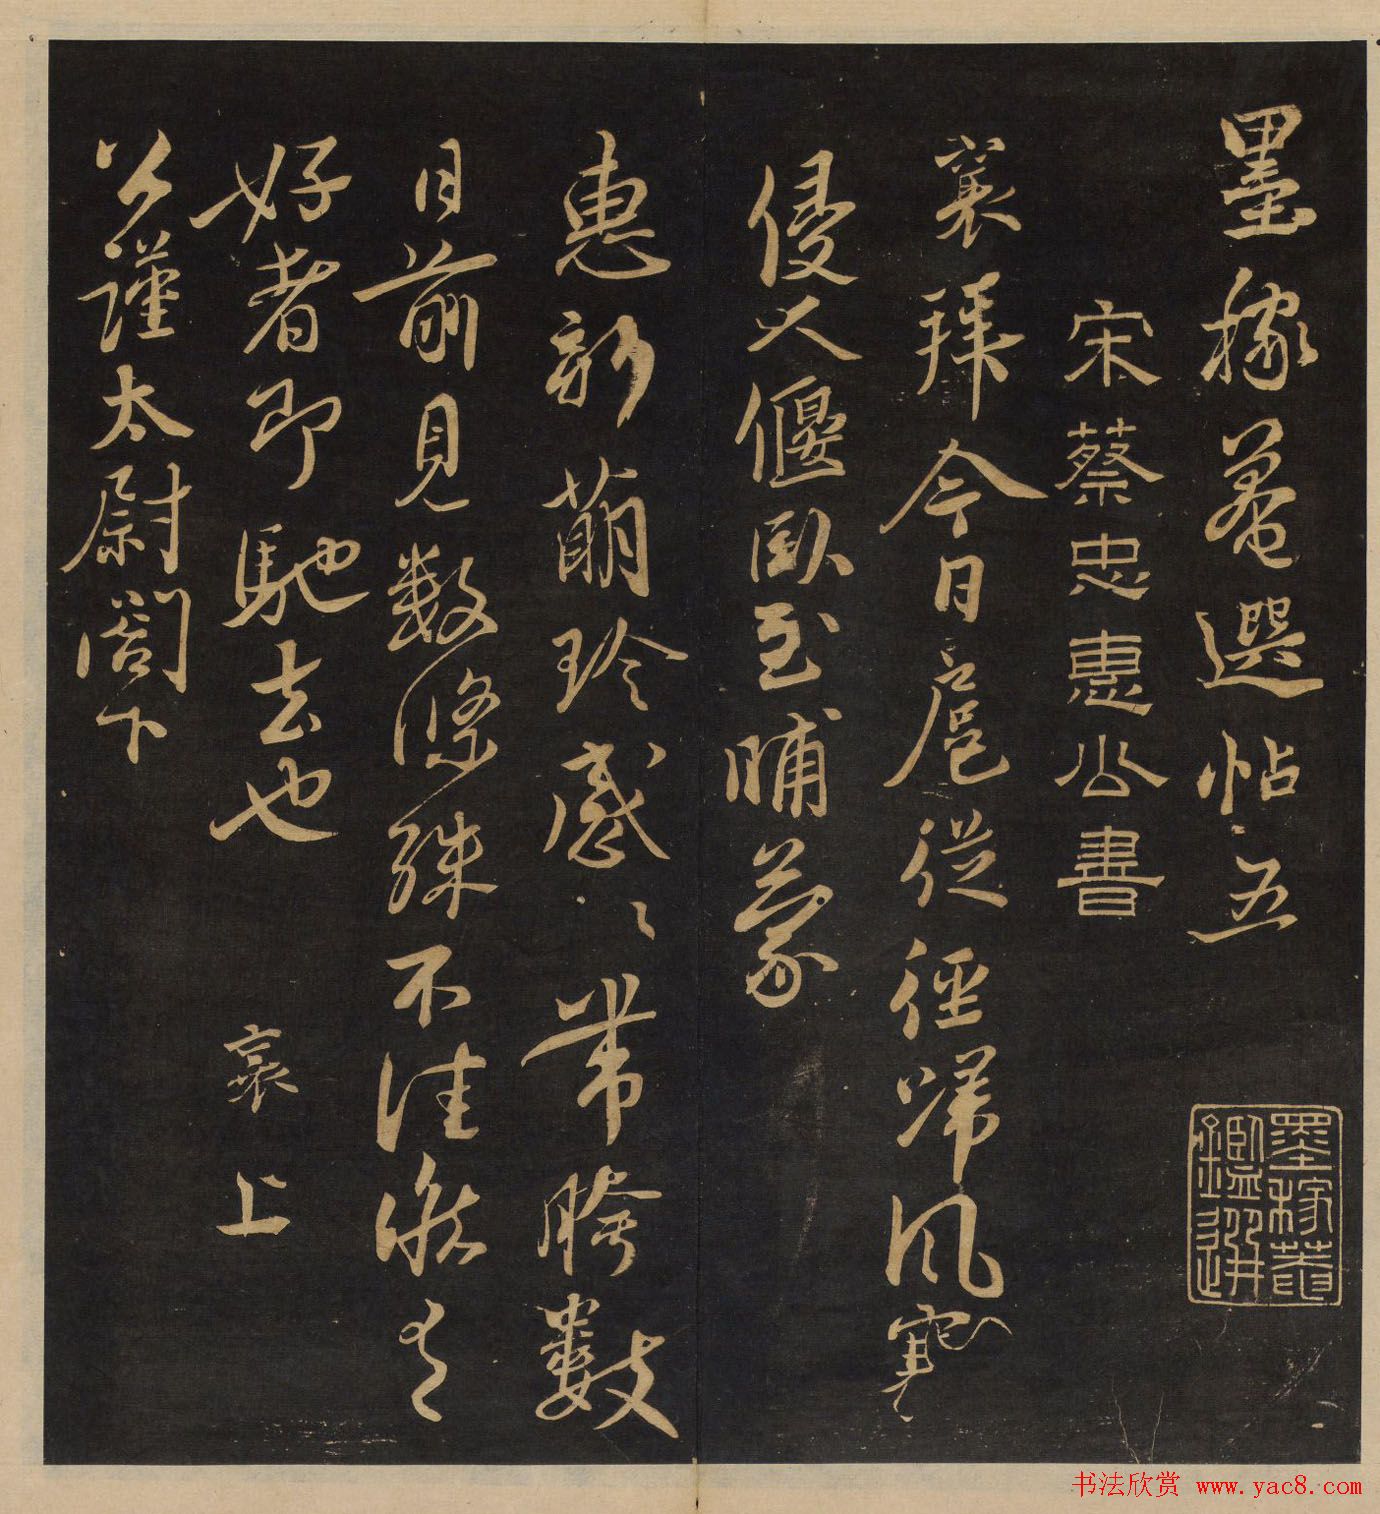 墨稼菴選帖五
宋蔡忠惠公書
襄拜今日扈從徑歸風寒
侵人偃臥至晡蒙
惠新萌珍感〻帶胯數
日前見數條殊不佳候有
好者即馳去也 襄上
公謹太尉閤下
墨稼菴
鑑選
书法欣赏 www.yac8.com